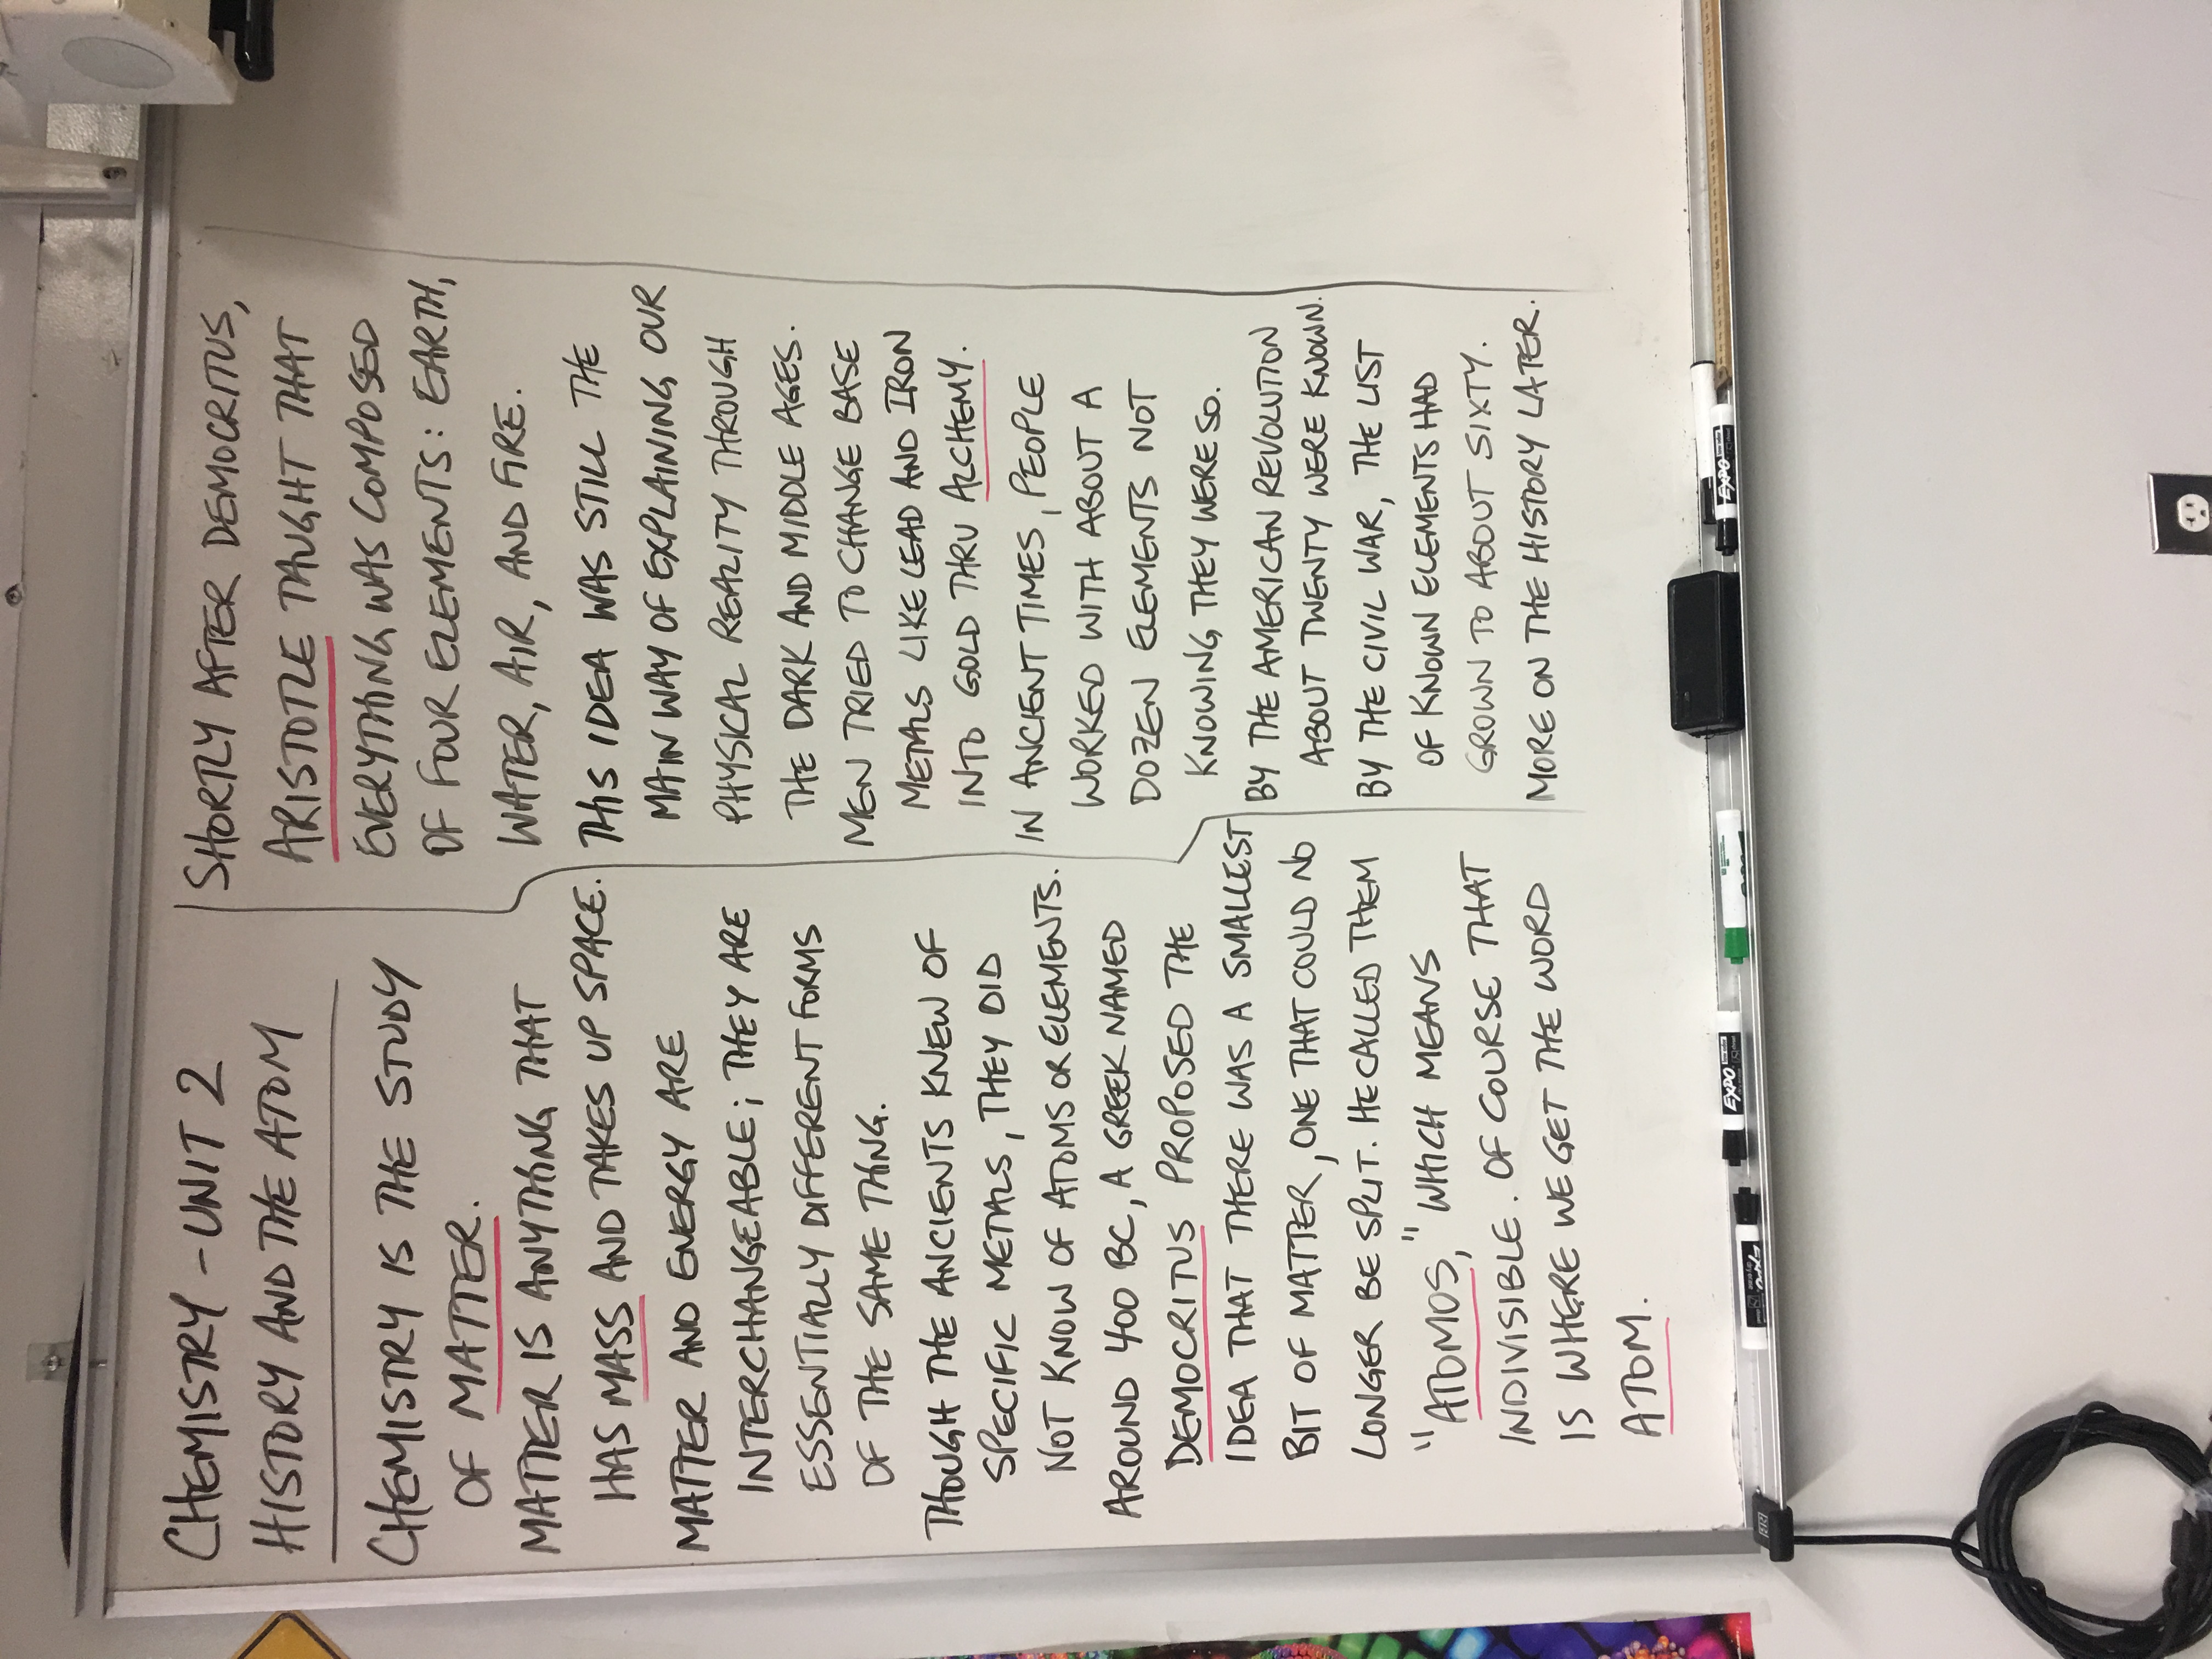 CHEMISTRY - UNIT 2
HISTORY AND THE ATOM
CHEMISTRY IS THE STUDY
OF MATTER.
MATTER IS ANYTHING THAT
HAS MASS AND TAKES UP SPACE.
MATTER AND ENERGY ARE
INTERCHANGEABLE; THEY ARE
ESSENTIALLY DIFFERENT FORMS
OF THE SAME THING.
THOUGH THE ANCIENTS KNEW OF
SPECIFIC METALS, THEY DID
NOT KNOW OF ATOMS OR ELEMENTS.
AROUND 400 BC, A GREEK NAMED
DEMOCRITUS PROPOSED THE
IDEA THAT THERE WAS A SMALLEST
BIT OF MATTER, ONE THAT COULD NO
LONGER BE SPLIT. HE CALLED THEM
"ATOMOS," WHICH MEANS
INDIVISIBLE. OF COURSE THAT
IS WHERE WE GET THE WORD
ATOM.
SHORTLY AFTER DEMOCRITUS,
ARISTOTLE TAUGHT THAT
EVERYTHING WAS COMPOSED
OF FOUR ELEMENTS: EARTH,
WATER, AIR, AND FIRE.
THIS IDEA WAS STILL THE
MAIN WAY OF EXPLAINING OUR
PHYSICAL REALITY THROUGH
THE DARK AND MIDDLE AGES.
MEN TRIED TO CHANGE BASE
METALS LIKE LEAD AND IRON
INTO GOLD THRU ALCHEMY.
IN ANCIENT TIMES, PEOPLE
WORKED WITH ABOUT A
DOZEN ELEMENTS NOT
KNOWING THEY WERE SO.
BY THE AMERICAN REVOLUTION
ABOUT TWENTY WERE KNOWN.
BY THE CIVIL WAR, THE LIST
OF KNOWN ELEMENTS HAD
GROWN TO ABOUT SIXTY.
MORE ON THE HISTORY LATER.
EXPO
EXPO
EXPO